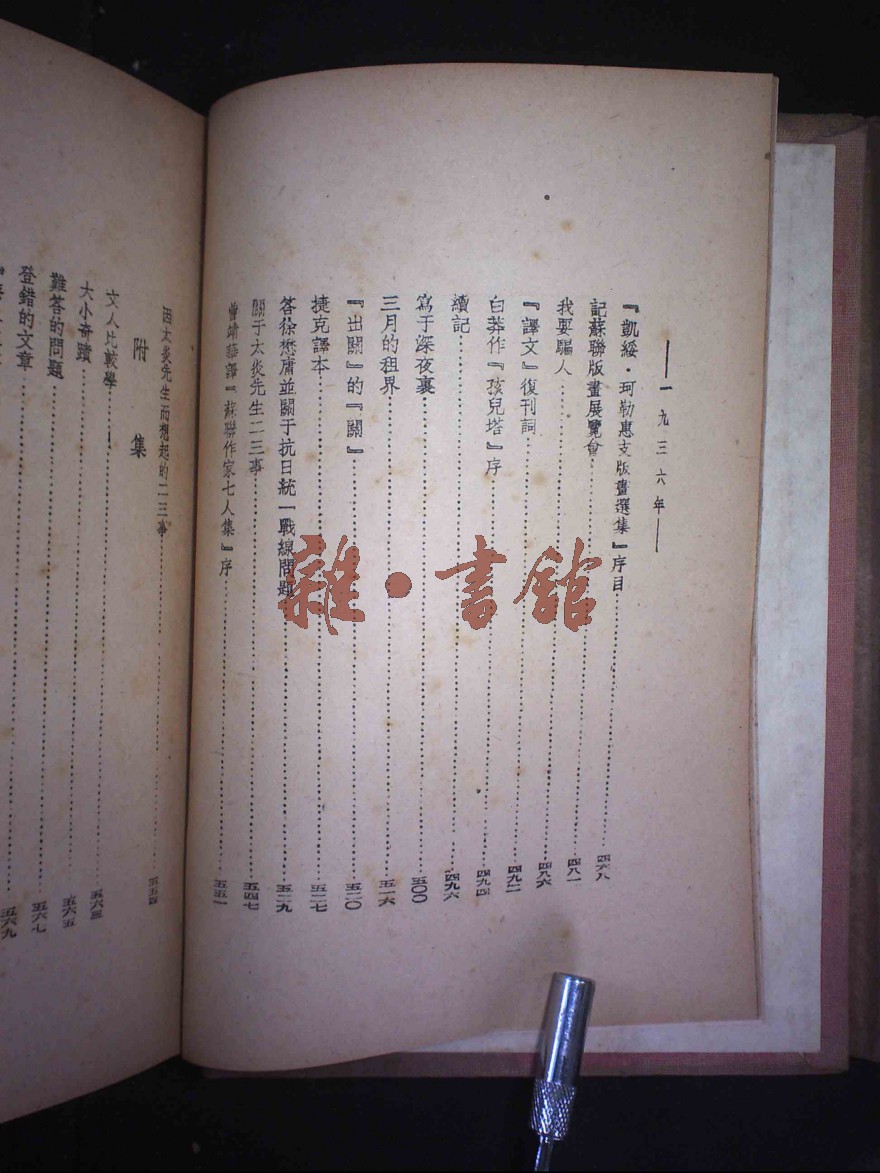 ——一九三六年——
『凱綏·珂勒惠支版畫選集』序目……四六八
記蘇聯版畫展覽會……四八一
我要騙人……四八六
『譯文』復刊詞……四九二
白莽作『孩兒塔』序……四九四
續記……四九六
寫于深夜裏……五〇〇
三月的租界……五一六
『出關』的『關』……五二〇
捷克譯本……五二七
答徐懋庸並關于抗日統一戰線問題……五二九
關于太炎先生二三事……五四七
曾靖華譯『蘇聯作家七人集』序……五五一
因太炎先生而想起的二三事……五五四
附集
文人比較學……五六三
大小奇蹟……五六五
難答的問題……五六七
登錯的文章……五六九
雜·書館